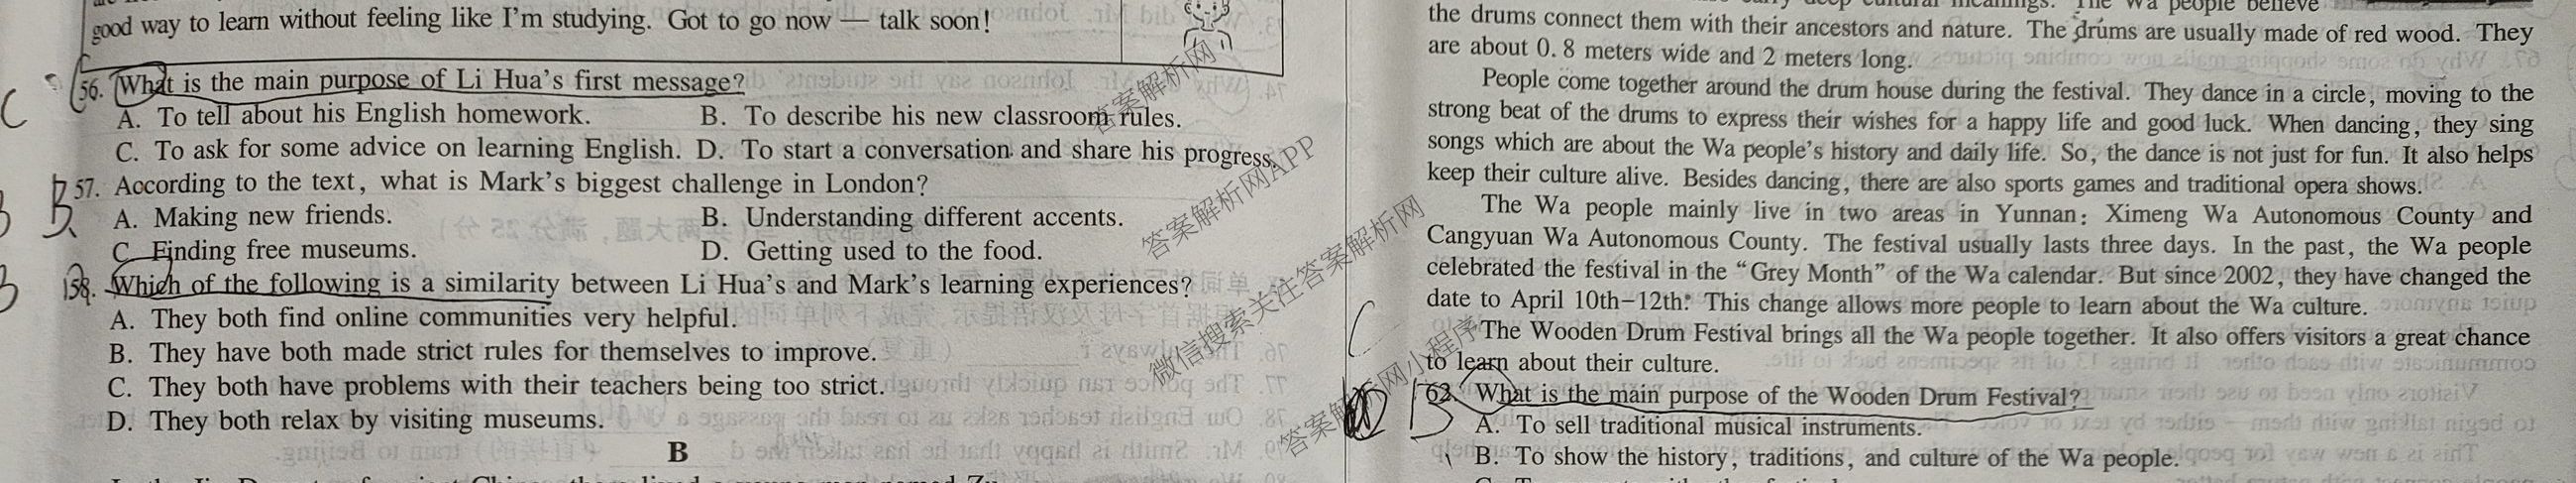 good way to learn without feeling like I'm studying. Got to go now — talk soon!
56. What is the main purpose of Li Hua's first message?
A. To tell about his English homework. B. To describe his new classroom rules.
C. To ask for some advice on learning English. D. To start a conversation and share his progress.
57. According to the text, what is Mark's biggest challenge in London?
A. Making new friends. B. Understanding different accents.
C. Finding free museums. D. Getting used to the food.
58. Which of the following is a similarity between Li Hua's and Mark's learning experiences?
A. They both find online communities very helpful.
B. They have both made strict rules for themselves to improve.
C. They both have problems with their teachers being too strict.
D. They both relax by visiting museums.
B
the drums connect them with their ancestors and nature. The drums are usually made of red wood. They
are about 0.8 meters wide and 2 meters long.
People come together around the drum house during the festival. They dance in a circle, moving to the
strong beat of the drums to express their wishes for a happy life and good luck. When dancing, they sing
songs which are about the Wa people's history and daily life. So, the dance is not just for fun. It also helps
keep their culture alive. Besides dancing, there are also sports games and traditional opera shows.
The Wa people mainly live in two areas in Yunnan: Ximeng Wa Autonomous County and
Cangyuan Wa Autonomous County. The festival usually lasts three days. In the past, the Wa people
celebrated the festival in the “Grey Month” of the Wa calendar. But since 2002, they have changed the
date to April 10th–12th. This change allows more people to learn about the Wa culture.
The Wooden Drum Festival brings all the Wa people together. It also offers visitors a great chance
to learn about their culture.
62. What is the main purpose of the Wooden Drum Festival?
A. To sell traditional musical instruments.
B. To show the history, traditions, and culture of the Wa people.
C
B
B
B
C
B
答案解析网
答案解析网APP
微信搜索关注答案解析网
答案解析网小程序